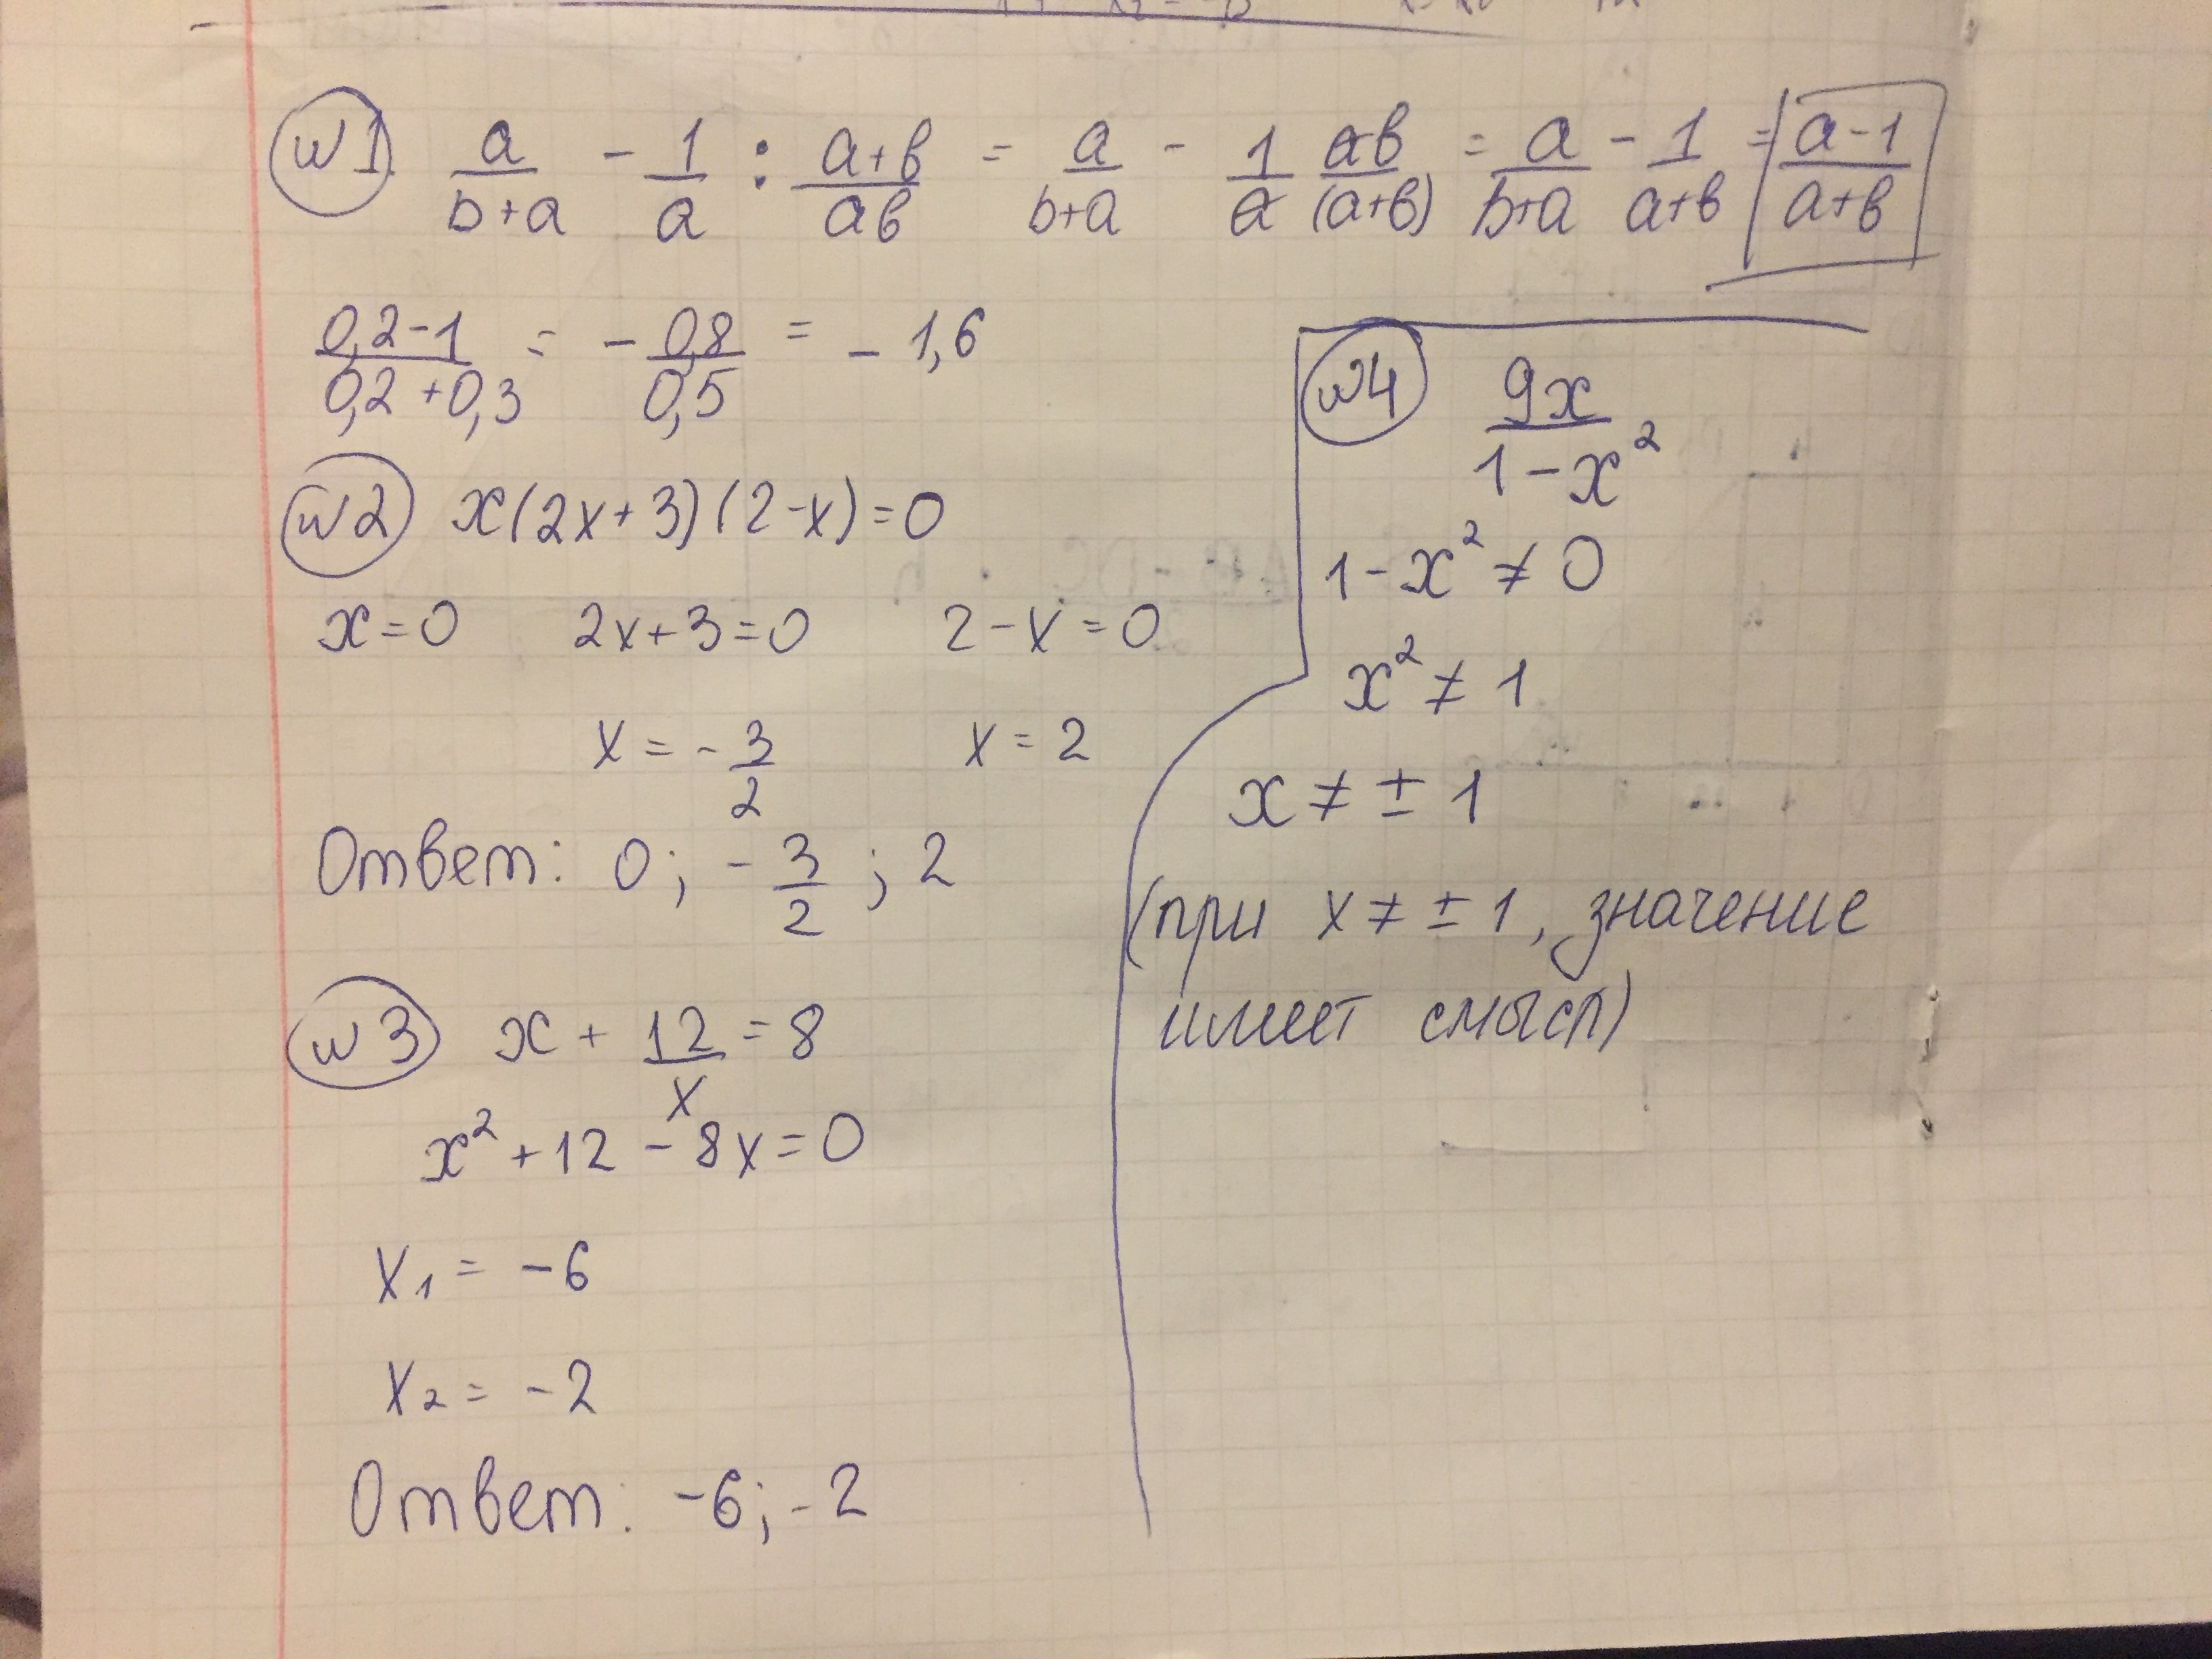 №1. a/(b+a) - 1/a : (a+b)/(ab) = a/(b+a) - 1/a ab/(a+b) = a/(b+a) - 1/(a+b) = (a-1)/(a+b)
(0,2-1)/(0,2+0,3) = - 0,8/0,5 = - 1,6
№2 x(2x+3)(2-x)=0
x=0 2x+3=0 2-x=0
x = - 3/2 x = 2
Ответ: 0; - 3/2 ; 2
№3 x + 12/x = 8
x² + 12 - 8x = 0
x₁ = -6
x₂ = -2
Ответ: -6; -2
№4 9x/(1-x²)
1-x² ≠ 0
x² ≠ 1
x ≠ ± 1
(при x ≠ ± 1, значение
имеет смысл)